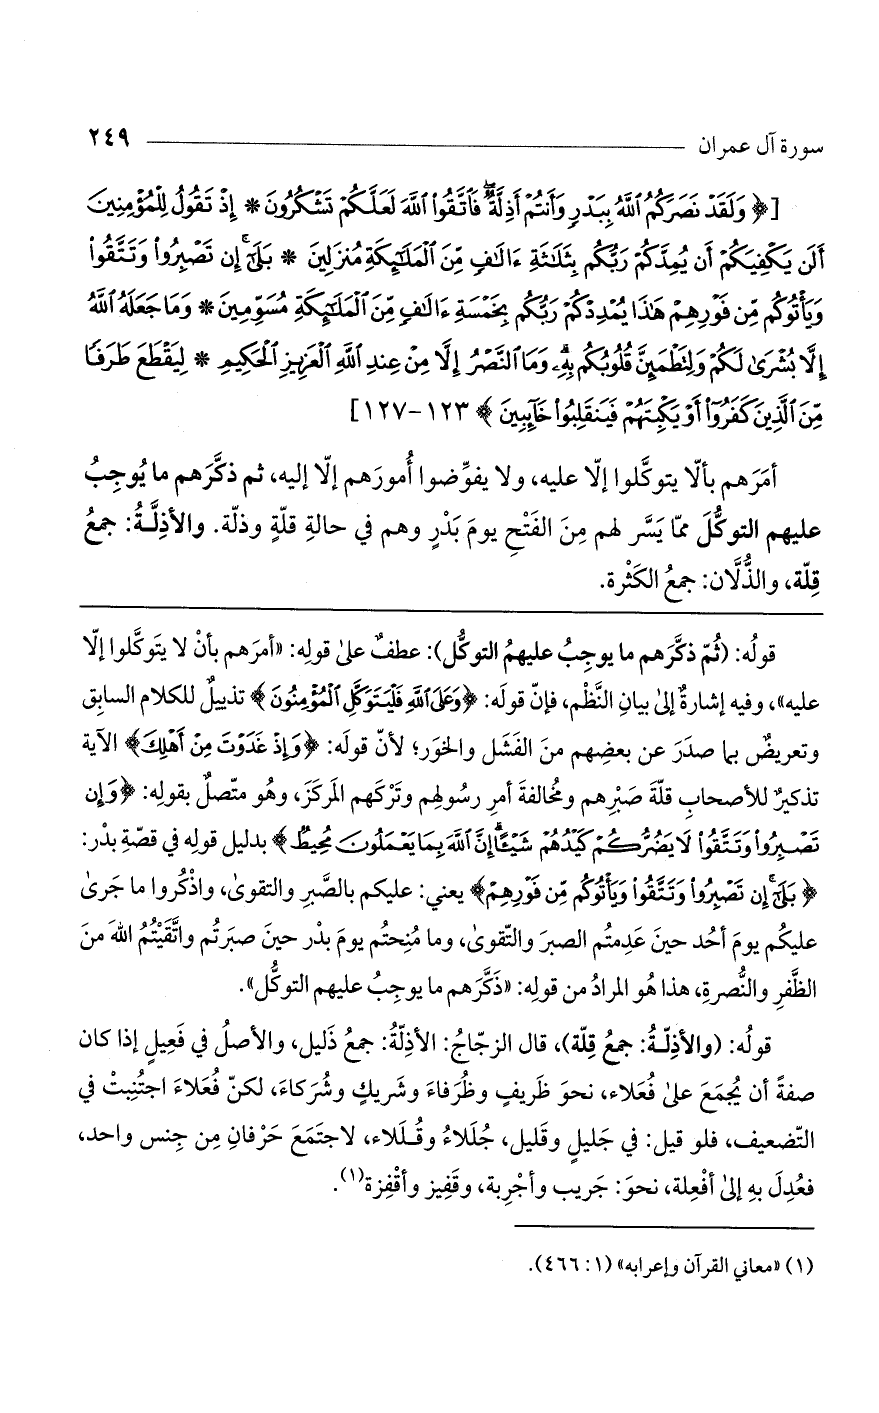 سورة آل عمران ٢٤٩
[﴿ وَلَقَدْ نَصَرَكُمُ ٱللَّهُ بِبَدْرٍ وَأَنتُمْ أَذِلَّةٌ ۖ فَٱتَّقُوا۟ ٱللَّهَ لَعَلَّكُمْ تَشْكُرُونَ * إِذْ تَقُولُ لِلْمُؤْمِنِينَ
أَلَن يَكْفِيَكُمْ أَن يُمِدَّكُمْ رَبُّكُم بِثَلَٰثَةِ ءَالَٰفٍ مِّنَ ٱلْمَلَٰٓئِكَةِ مُنزَلِينَ * بَلَىٰٓ ۚ إِن تَصْبِرُوا۟ وَتَتَّقُوا۟
وَيَأْتُوكُم مِّن فَوْرِهِمْ هَٰذَا يُمْدِدْكُمْ رَبُّكُم بِخَمْسَةِ ءَالَٰفٍ مِّنَ ٱلْمَلَٰٓئِكَةِ مُسَوِّمِينَ * وَمَا جَعَلَهُ ٱللَّهُ
إِلَّا بُشْرَىٰ لَكُمْ وَلِتَطْمَئِنَّ قُلُوبُكُم بِهِۦ ۗ وَمَا ٱلنَّصْرُ إِلَّا مِنْ عِندِ ٱللَّهِ ٱلْعَزِيزِ ٱلْحَكِيمِ * لِيَقْطَعَ طَرَفًا
مِّنَ ٱلَّذِينَ كَفَرُوٓا۟ أَوْ يَكْبِتَهُمْ فَيَنقَلِبُوا۟ خَآئِبِينَ ﴾ ١٢٣-١٢٧]
أمَرَهم بألّا يتوكَّلوا إلّا عليه، ولا يفوِّضوا أُمورَهم إلّا إليه، ثم ذكَّرَهم ما يُوجِبُ
عليهم التوكُّلَ ممّا يَسَّر لهم مِنَ الفَتْحِ يومَ بَدْرٍ وهم في حالةِ قلّةٍ وذلّة. والأذِلَّةُ: جمعُ
قِلّة، والذُّلَّان: جمعُ الكَثْرة.
قولُه: (ثُمّ ذكَّرَهم ما يوجِبُ عليهمُ التوكُّل): عطفٌ علىٰ قولِه: «أمرَهم بأنْ لا يَتوكَّلوا إلّا
عليه»، وفيه إشارةٌ إلىٰ بيانِ النَّظْم، فإنّ قولَه: ﴿وَعَلَى ٱللَّهِ فَلْيَتَوَكَّلِ ٱلْمُؤْمِنُونَ﴾ تذييلٌ للكلامِ السابقِ
وتعريضٌ بما صدَرَ عن بعضِهم منَ الفَشَل والخوَر؛ لأنّ قولَه: ﴿وَإِذْ غَدَوْتَ مِنْ أَهْلِكَ﴾ الآية
تذكيرٌ للأصحابِ قلّةَ صَبْرِهم ومُخالفةَ أمرِ رسولِهم وتَرْكَهم المَركَزَ، وهو متّصلٌ بقولِه: ﴿وَإِن
تَصْبِرُوا۟ وَتَتَّقُوا۟ لَا يَضُرُّكُمْ كَيْدُهُمْ شَيْـًٔا ۗ إِنَّ ٱللَّهَ بِمَا يَعْمَلُونَ مُحِيطٌ﴾ بدليل قولِه في قصّةِ بدْر:
﴿ بَلَىٰٓ ۚ إِن تَصْبِرُوا۟ وَتَتَّقُوا۟ وَيَأْتُوكُم مِّن فَوْرِهِمْ﴾ يعني: عليكم بالصَّبرِ والتقوىٰ، واذْكُروا ما جَرىٰ
عليكُم يومَ أُحُد حينَ عَدِمتُم الصبرَ والتّقوىٰ، وما مُنِحتُم يومَ بدْر حينَ صبَرتُم واتَّقَيْتُمُ اللهَ منَ
الظَّفَرِ والنُّصرةِ، هذا هُو المرادُ من قولِه: «ذَكَّرَهم ما يوجِبُ عليهم التوكُّل».
قولُه: (والأذِلّةُ: جمعُ قِلة)، قال الزجّاجُ: الأذِلّةُ: جمعُ ذَليل، والأصلُ في فَعِيلٍ إذا كان
صفةً أن يُجمَعَ علىٰ فُعَلاء، نحوَ ظَريفٍ وظُرفاءَ وشَريكٍ وشُركاءَ، لكنّ فُعَلاءَ اجتُنِبتْ في
التّضعيف، فلو قيل: في جَليلٍ وقَليل، جُلَلاءُ وقُـلَلاء، لاجتَمَعَ حَرْفانِ مِن جِنس واحد،
فعُدِلَ بِهِ إلىٰ أفْعِلة، نحوَ: جَريب وأجْرِبة، وقَفِيز وأقْفِزة(١).
(١) «معاني القرآن وإعرابه» (١: ٤٦٦).